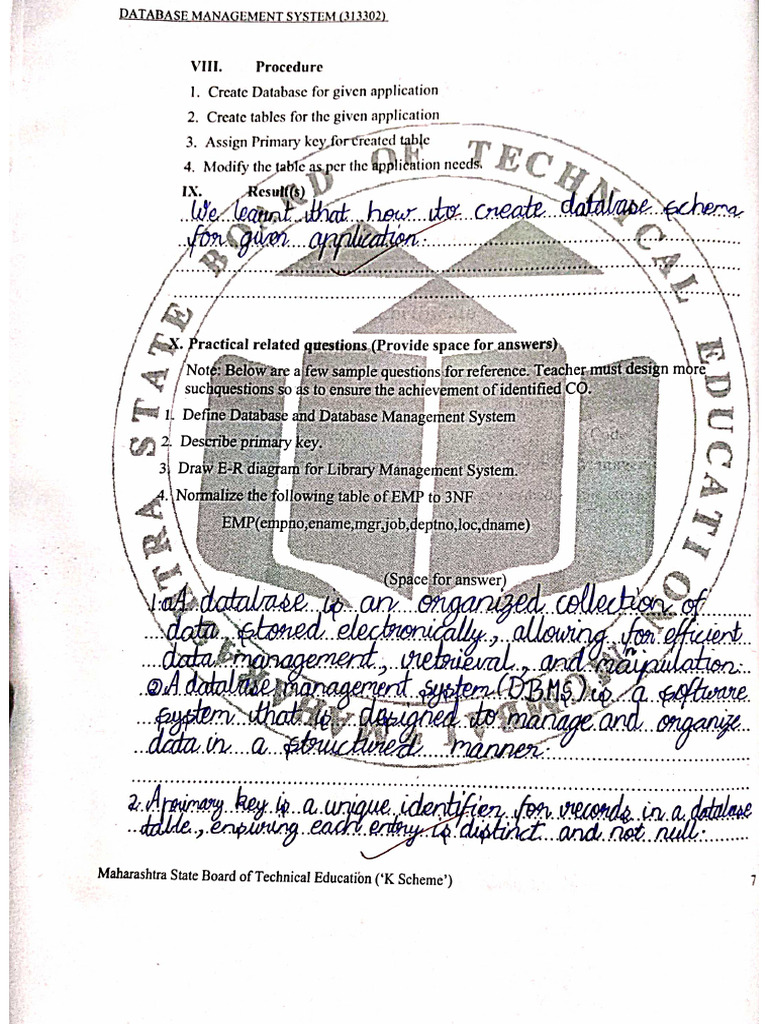 DATABASE MANAGEMENT SYSTEM (313302)
VIII. Procedure
1. Create Database for given application
2. Create tables for the given application
3. Assign Primary key for created table
4. Modify the table as per the application needs.
IX. Result(s)
We learnt that how to create database schema
for given application.
X. Practical related questions (Provide space for answers)
Note: Below are a few sample questions for reference. Teacher must design more
suchquestions so as to ensure the achievement of identified CO.
1. Define Database and Database Management System
2. Describe primary key.
3. Draw E-R diagram for Library Management System.
4. Normalize the following table of EMP to 3NF
EMP(empno,ename,mgr,job,deptno,loc,dname)
(Space for answer)
1. A database is an organized collection of
data stored electronically, allowing for efficient
data management, retrieval, and manipulation.
② A database management system (DBMS) is a software
system that is designed to manage and organize
data in a structured manner.
2. A primary key is a unique identifier for records in a database
table, ensuring each entry is distinct and not null.
Maharashtra State Board of Technical Education ('K Scheme')
7
STATE BOARD OF TECHNICAL EDUCATION